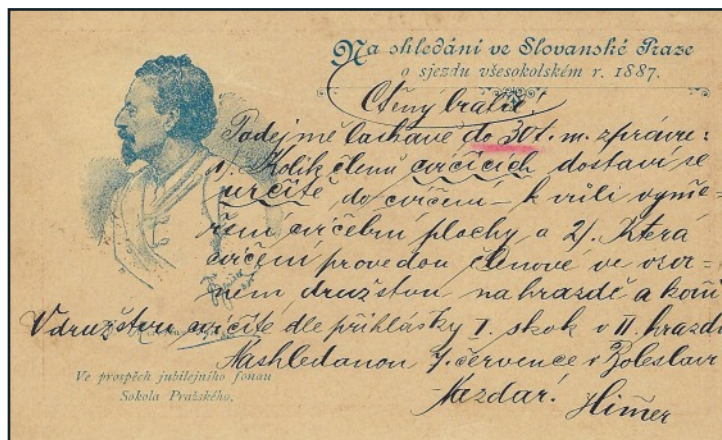 Na shledání ve Slovanské Praze
o sjezdu všesokolském r. 1887.
Ctěný bratře!
Podejmě laskavě do 30 t. m. zprávu:
1/. Kolik členů cvičících dostaví se
určitě do cvičení – k vůli vymě-
ření cvičební plochy a 2/. Která
cvičení provedou členové ve vzor-
ném družstvu na hrazdě a koni
V družstvu určitě dle přihlášky I. skok v II. hrazda
Nashledanou 7. července v Boleslavi
Nazdar! Himer
Ve prospěch jubilejního fondu
Sokola Pražského.